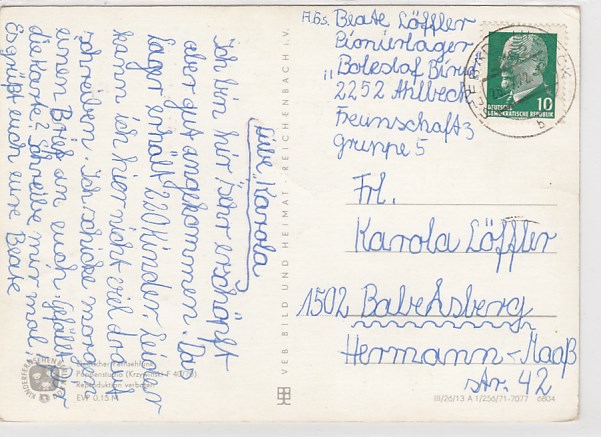 Abs. Beate Löffler
Pionierlager
"Boleslaf Birut
2252 Ahlbeck
Freunschaft 3
gruppe 5
Frl.
Karola Löffler
1502 Babelsberg
Hermann-Maaß
str. 42
Liebe Karola
Ich bin hir sehr erschöpft
aber gut angekommen. Das
Lager erhält 220 Kinder. Leider
kann ich hier nicht viel drauf
schreiben. Ich schicke morgen
einen Brief an euch. Gefällt dir
die Karte? Schreibe mir mal.
Es grüßt euch eure Beate
10
DEUTSCHE
DEMOKRATISCHE REPUBLIK
VEB BILD UND HEIMAT · REICHENBACH i. V.
KINDERFERNSEHEN
Reproduktion verboten
EVP 0,15 M
III/26/13 A 1/256/71-7077 6604